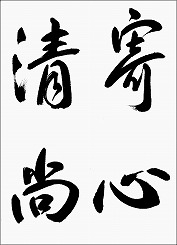 寄心
清尚